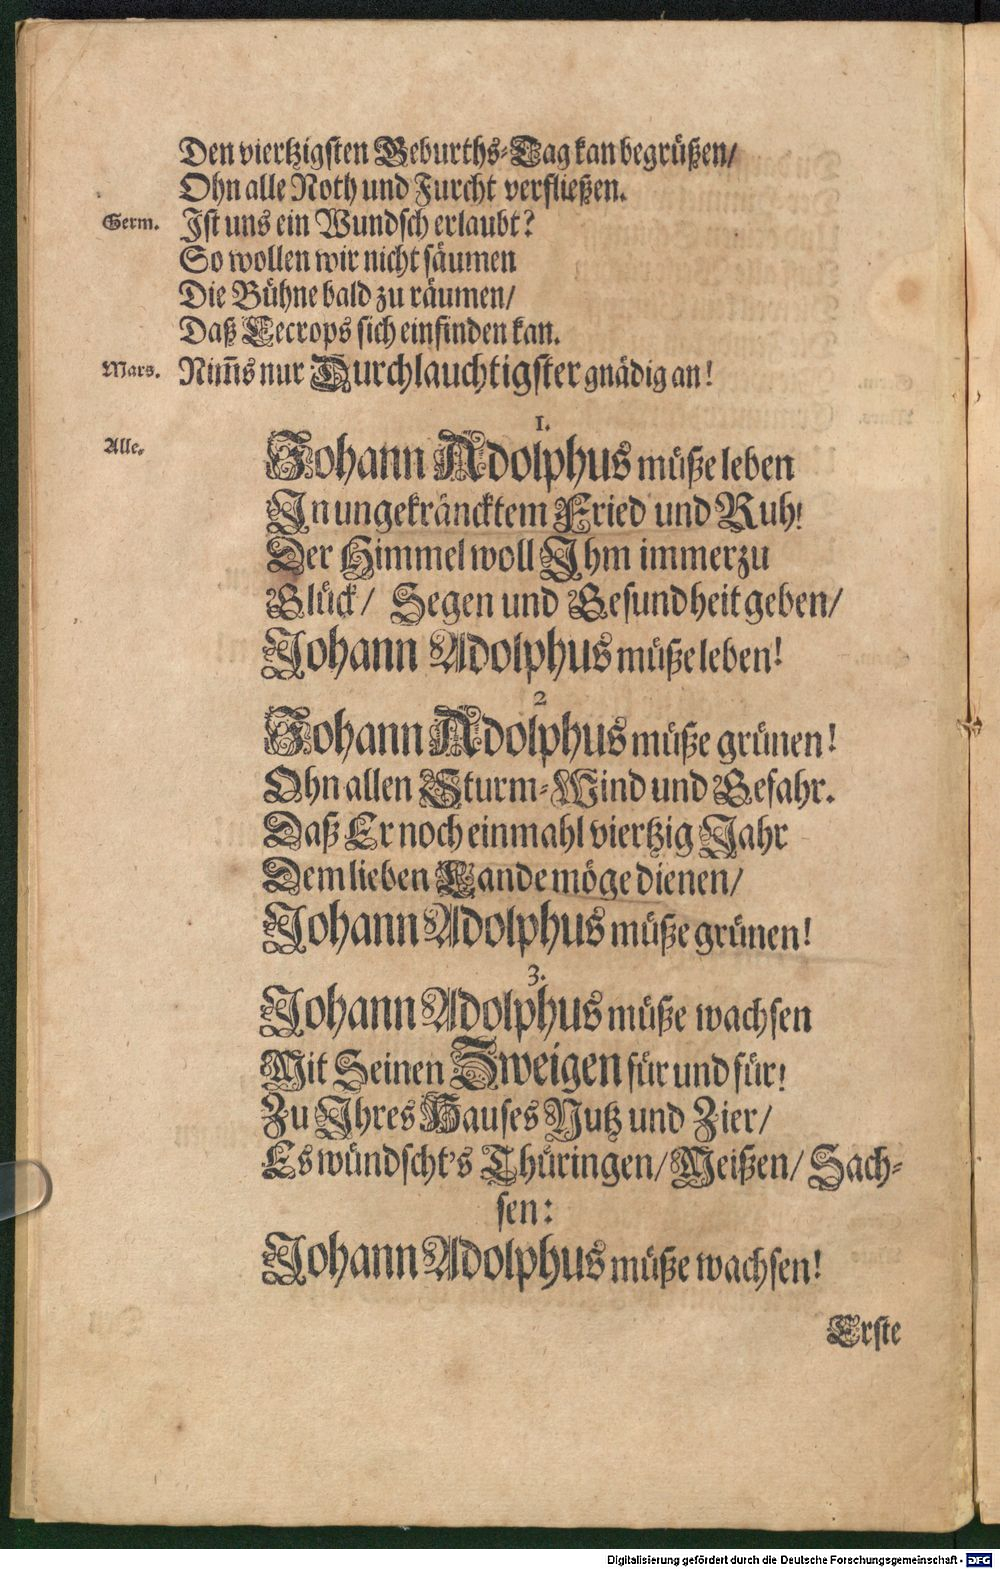 Den viertzigsten Geburths-Tag kan begrüßen/
Ohn alle Noth und Furcht verfließen.
Germ. Ist uns ein Wundsch erlaubt?
So wollen wir nicht säumen
Die Bühne bald zu räumen/
Daß Cecrops sich einfinden kan.
Mars. Nim̃s nur Durchlauchtigster gnädig an!
1.
Alle. Johann Adolphus müße leben
In ungekräncktem Fried und Ruh!
Der Himmel woll Ihm immerzu
Glück/ Segen und Gesundheit geben/
Johann Adolphus müße leben!
2
Johann Adolphus müße grünen!
Ohn allen Sturm-Wind und Gefahr.
Daß Er noch einmahl viertzig Jahr
Dem lieben Lande möge dienen/
Johann Adolphus müße grünen!
3.
Johann Adolphus müße wachsen
Mit Seinen Zweigen für und für!
Zu Ihres Hauses Nutz und Zier/
Es wündscht's Thüringen/ Meißen/ Sach-
sen:
Johann Adolphus müße wachsen!
Erste
Digitalisierung gefördert durch die Deutsche Forschungsgemeinschaft - DFG